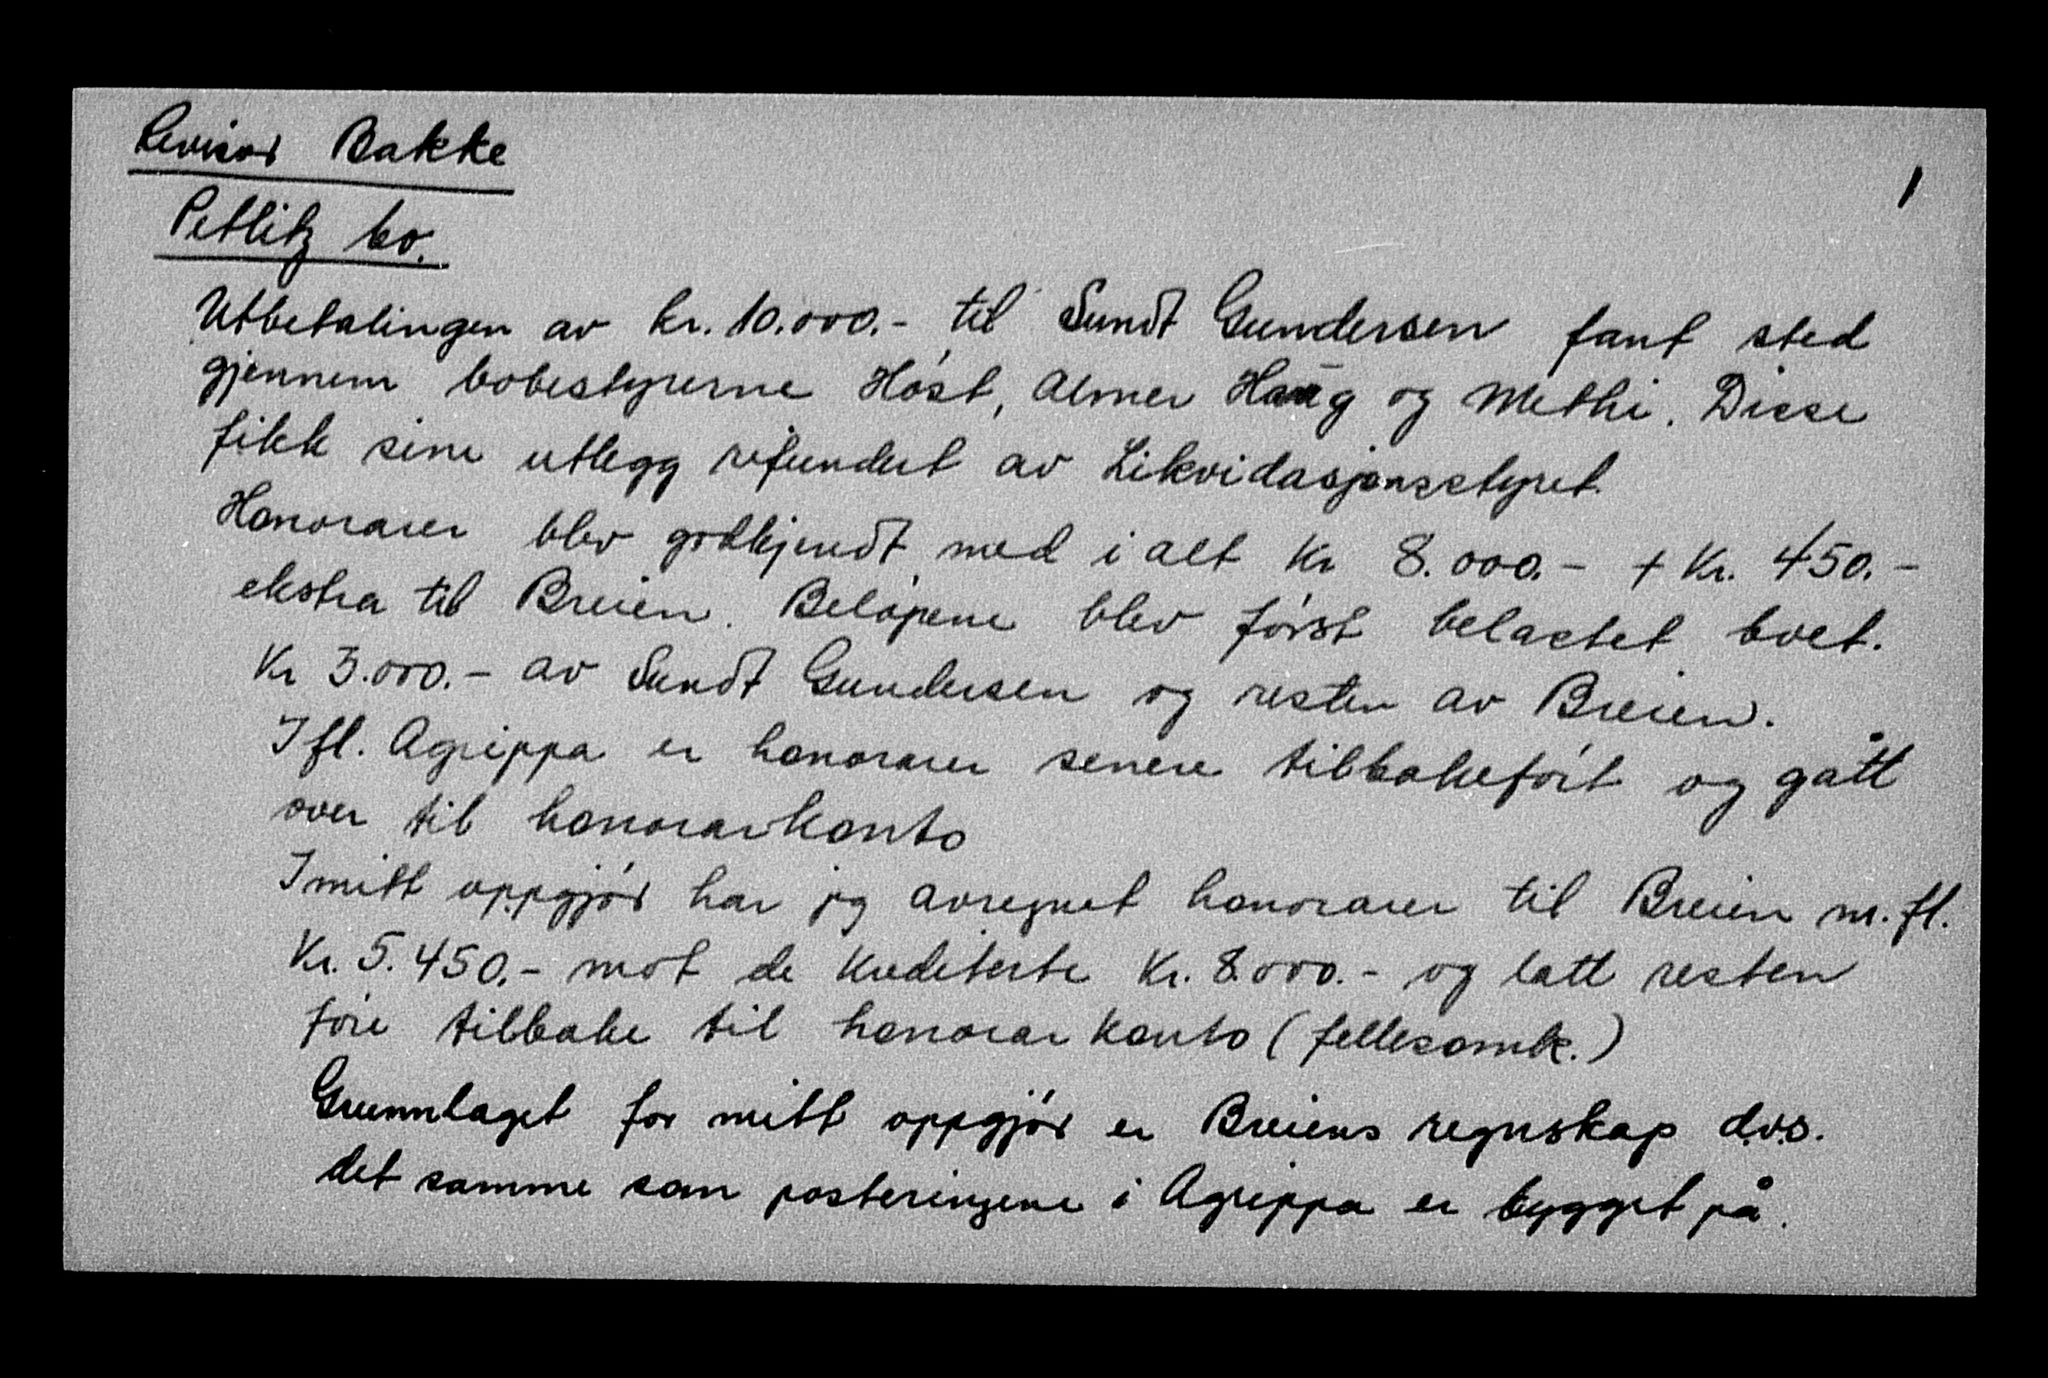 Revisor Bakke
1
Petlitz bo.
Utbetalingen av kr. 10.000.- til Sundt Gundersen fant sted
gjennem bobestyrerne Høst, Almer Haug og Methi. Disse
fikk sine utlegg refundert av Likvidasjonsstyret.
Honorarer blev godkjendt med i alt Kr 8.000.- + Kr. 450.-
ekstra til Breien. Beløpene blev først belastet boet.
Kr 3.000.- av Sundt Gundersen og resten av Breien.
I fl. Agrippa er honorarer senere tilbakeført og gått
over til honorarkonto
I mitt oppgjør har jeg avregnet honorarer til Breien m.fl.
Kr. 5.450.- mot de krediterte Kr. 8.000.- og latt resten
føre tilbake til honorar konto (fellesomk.)
Grunnlaget for mitt oppgjør er Breiens regnskap d.v.s.
det samme som posteringene i Agrippa er bygget på.